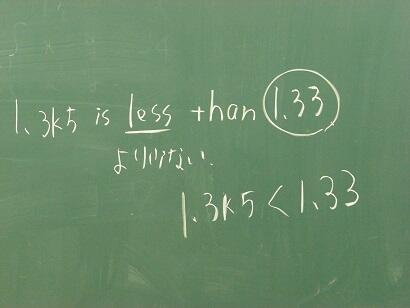 1.3は5 is less than 1.33
より小さない.
1.3は5 < 1.33